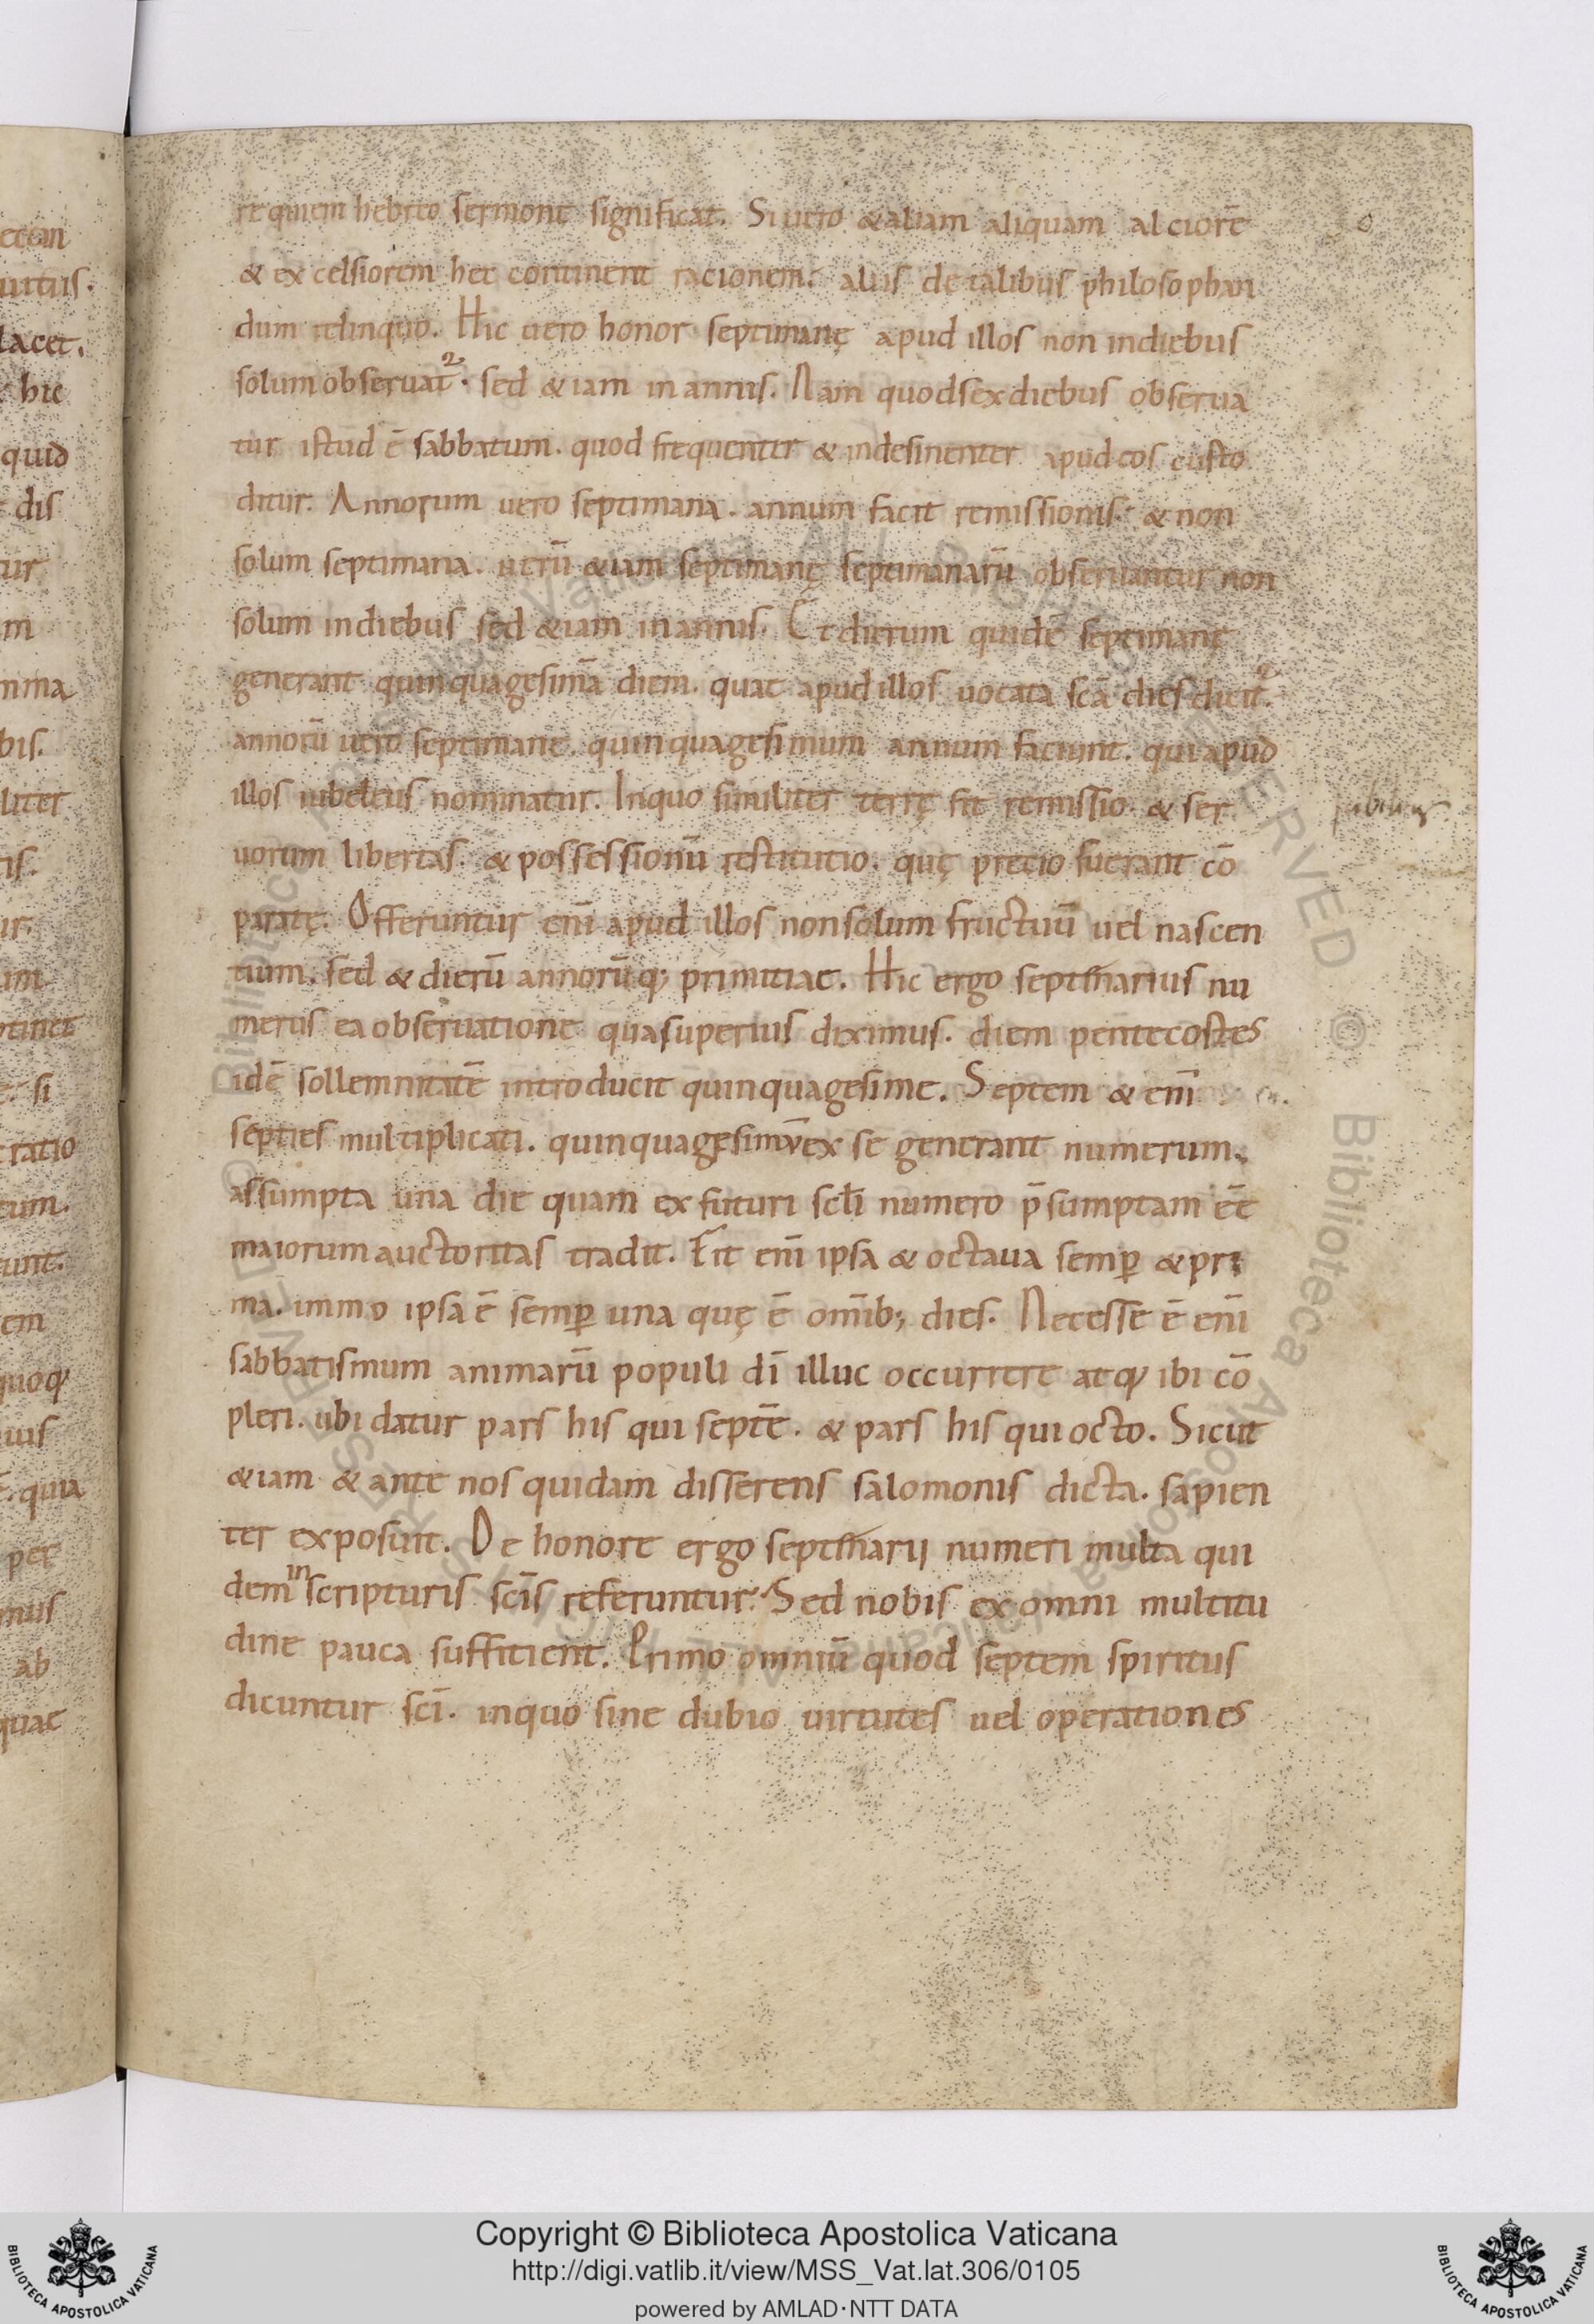 requiem hebreo sermone significat. Si uero & aliam aliquam alciorē
& excelsiorem hec continent racionem. aliis de talibus philosophan
dum relinquo. Hic uero honor septimanę apud illos non in diebus
solum obseruat2. sed & iam in annis. Nam quod sex diebus obserua
tur istud ē sabbatum. quod frequenter & indesinenter apud eos custo
ditur. Annorum uero septimana. annum facit remissionis. & non
solum septimana. uerū & iam septimanę septimanarū obseruantur non
solum in diebus sed & iam in annis. Et dierum quidē septimane
generant quinquagesimā diem. quae apud illos uocata scā dies dicit2.
annorū uero septimane. quinquagesimum annum faciunt. qui apud
illos iubeleus nominatur. In quo similiter terrę fit remissio. & ser
uorum libertas. & possessionū restitutio. quę precio fuerant cō
paratę. Offeruntur enī apud illos non solum fructuū uel nascen
tium. sed & dierū annorūq; primitiae. Hic ergo septīnarius nu
merus ea obseruatione qua superius diximus. diem pentecostes
idē sollemnitatē introducit quinquagesime. Septem & enī
septies multiplicati. quinquagesimū ex se generant numerum.
assumpta una die quam ex futuri sclī numero p̄sumptam eē
maiorum auctoritas tradit. Fit enī ipsa & octaua semꝑ & pri
ma. immo ipsa ē semꝑ una quę ē omīb; dies. Necesse ē enī
sabbatismum animarū populi dī illuc occurrere atqꝫ ibi cō
pleri. ubi datur pars his qui septē. & pars his qui octo. Sicut
& iam & ante nos quidam disserens salomonis dicta. sapien
ter exposuit. De honore ergo septīnarij numeri multa qui
dem in scripturis scīs referuntur. Sed nobis ex omni multitu
dine pauca suffitient. Primo omniū quod septem spiritus
dicuntur scī. in quo sine dubio uirtutes uel operationes
ecan
uirtus.
lacet.
hic
quid
dis
ur
m
mma
bis.
liter
tis.
ur.
um
rtinet
si
ratio
tum.
unt.
em
quoqꝫ
uus
quia
per
mus
ab
quae
© Biblioteca Apostolica Vaticana ALL RIGHTS RESERVED
Copyright © Biblioteca Apostolica Vaticana
http://digi.vatlib.it/view/MSS_Vat.lat.306/0105
powered by AMLAD·NTT DATA
BIBLIOTECA APOSTOLICA VATICANA
BIBLIOTECA APOSTOLICA VATICANA